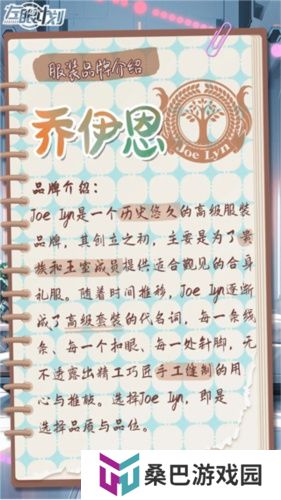 左眼计划
服装品牌介绍
乔伊恩
Joe Lyn
品牌介绍：
Joe lyn是一个历史悠久的高级服装
品牌，其创立之初，主要是为了贵
族和王室成员提供适合觐见的合身
礼服。随着时间推移，Joe lyn逐渐
成了高级套装的代名词，每一条线
条、每一个扣眼、每一处针脚，无
不透露出精工巧匠手工缝制的用
心与推敲。选择Joe lyn，即是
选择品质与品位。
桑巴游戏园